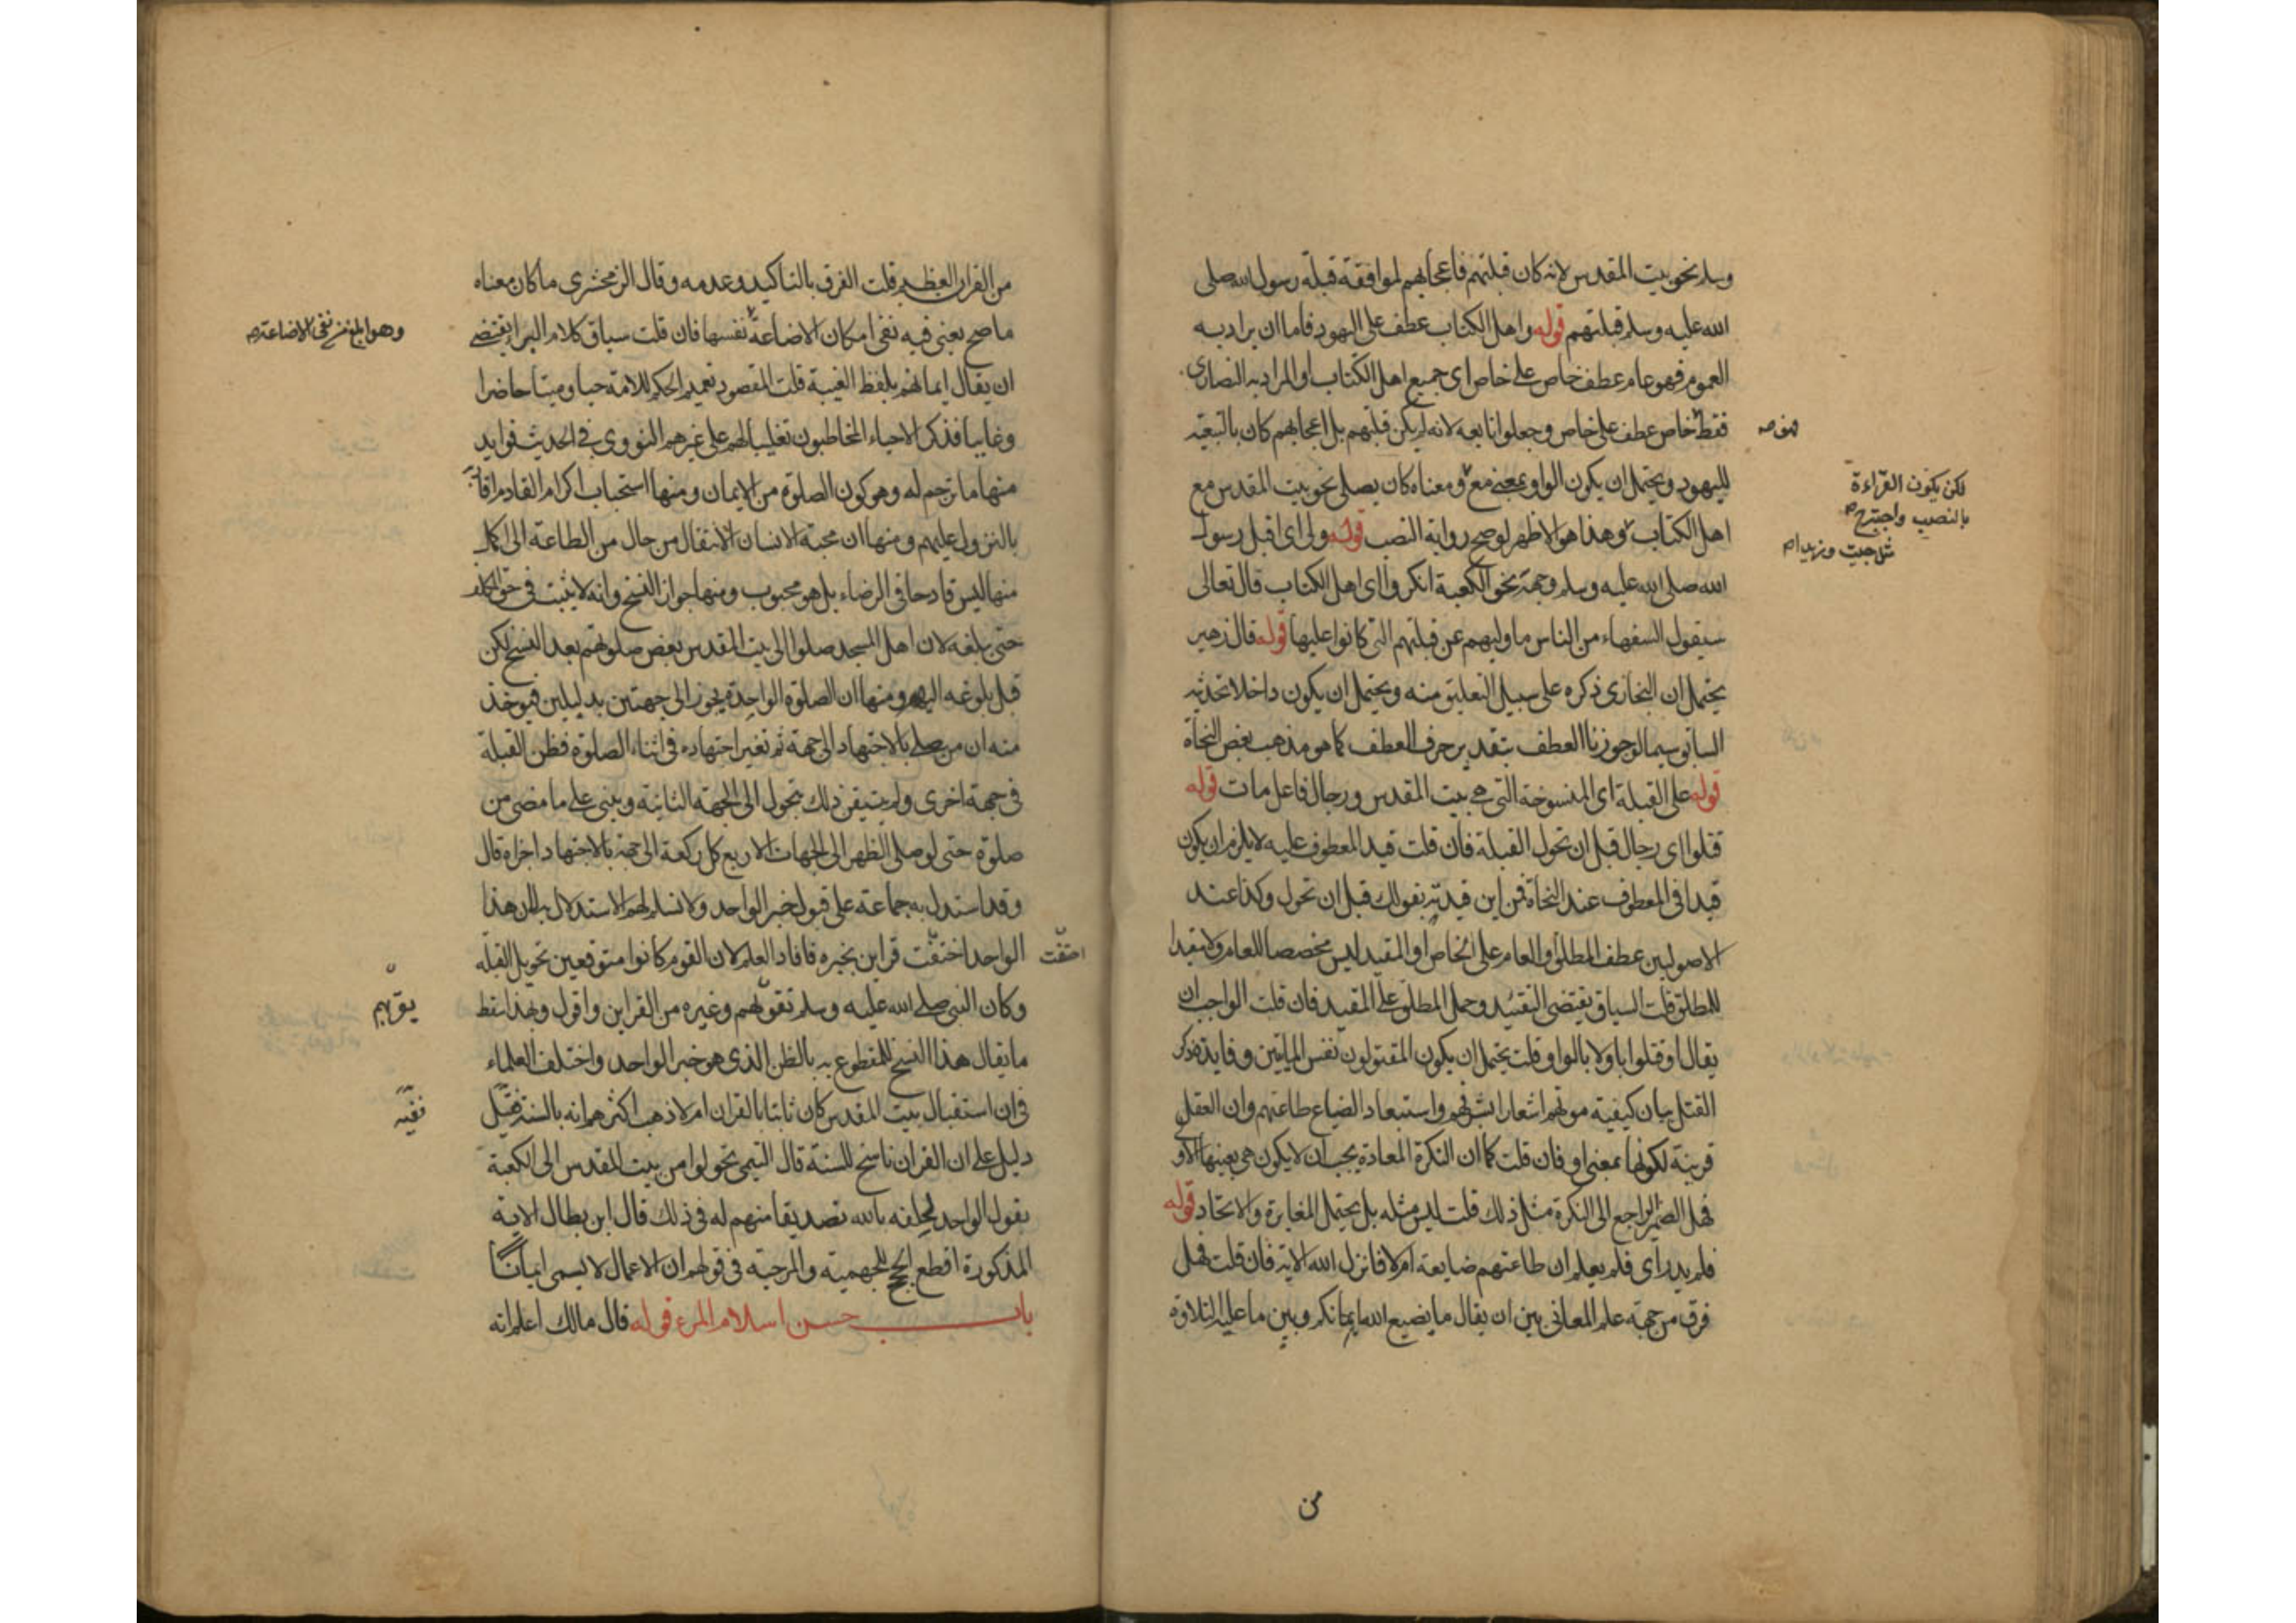 وسلم نحو بيت المقدس لانه كان قبلتهم فاعجابهم لموافقة قبلة رسول الله صلى
الله عليه وسلم قبلتهم قوله واهل الكتاب عطف على اليهود فاما ان يراد به
العموم فهو عام عطف خاص على خاص اى جميع اهل الكتاب او المراد به النصارى
فقط خاص عطف على خاص وجعلوا تابعه لانه لم يكن قبلتهم بل اعجابهم كان بالتبعية
فهو صح
لليهود ويحتمل ان يكون الواو بمعنى مع ومعناه كان يصلى نحو بيت المقدس مع
لكن يكون القراءة
بالنصب واحتج صح
مثل جيت وزيدا صح
اهل الكتاب وهذا هو الاظهر لو صح رواية النصب قوله ولى اى اقبل رسول
الله صلى الله عليه وسلم وجهه نحو الكعبة انكروا اى اهل الكتاب قال تعالى
سيقول السفهاء من الناس ما وليهم عن قبلتهم التى كانوا عليها قوله قال زهير
يحتمل ان البخارى ذكره على سبيل التعليق منه ويحتمل ان يكون داخلا تحت حديثه
السابق سيما لو جوزنا العطف بتقدير حرف العطف كما هو مذهب بعض النحاة
قوله على القبلة اى المنسوخة التى هى بيت المقدس ورجال فاعل مات قوله
قتلوا اى رجال قبل ان تحول القبلة فان قلت قيد المعطوف عليه لا يلزم ان يكون
قيدا فى المعطوف عند النحاة فمن اين قيدته بقولك قبل ان تحول وكذا عند
الاصوليين عطف المطلق او العام على الخاص او المقيد ليس مخصصا للعام ولا مقيدا
للمطلق قلت السياق يقتضى التقييد وحمل المطلق على المقيد فان قلت الواجب ان
يقال او قتلوا باو لا بالواو قلت يحتمل ان يكون المقتولون نفس الميتين وفايدة ذكر
القتل بيان كيفية موتهم اشعارا بشرفهم واستبعاد الضياع طاعتهم وان العقل
قرينة لكونها بمعنى او فان قلت كما ان النكرة المعادة يجب ان لا يكون هى بعينها الاو
فهل الضمير الراجع الى النكرة مثل ذلك قلت ليس مثله بل يحتمل المغايرة والاتحاد قوله
فلم يدر اى فلم يعلم ان طاعتهم ضايعة ام لا فانزل الله الاية فان قلت فهل
فرق من جهة علم المعانى بين ان يقال ما يضيع الله ايمانكم وبين ما عليه التلاوة
من
من القران العظيم قلت الفرق بالتاكيد وعدمه وقال الزمخشرى ما كان معناه
ما صح يعنى فيه نفى امكان الاضاعة نفسها فان قلت سياق كلام البراء يقتضى
وهو ابلغ من نفى الاضاعة صح
ان يقال ايمانهم بلفظ الغيبة قلت المقصود تعميم الحكم للامة حيا وميتا حاضرا
وغايبا فذكر الاحياء المخاطبون تغليبا لهم على غيرهم النووى فى الحديث فوايد
منها ما ترجم له وهو كون الصلوة من الايمان ومنها استحباب اكرام القادم اقاربه
بالنزول عليهم ومنها ان محبة الانسان الانتقال من حال من الطاعة الى اكمل
منها ليس قادحا فى الرضاء بل هو محبوب ومنها جواز النسخ وانه لا يثبت فى حق المكلف
حتى يبلغه لان اهل المسجد صلوا الى بيت المقدس بعض صلوتهم بعد النسخ لكن
قبل بلوغه اليهم ومنها ان الصلوة الواحدة يجوز الى جهتين بدليلين فيوخذ
منه ان من صلى بالاجتهاد الى جهة ثم تغير اجتهاده فى اثناء الصلوة فظن القبلة
فى جهة اخرى ولم يتيقن ذلك يتحول الى الجهة الثانية ويبنى على ما مضى من
صلوة حتى لو صلى الظهر الى الجهات الاربع كل ركعة الى جهة بالاجتهاد اجزاه قال
وقد استدل به جماعة على قبول خبر الواحد ولا نسلم لهم الاستدلال به لان هذا
الواحد احتفت قراين بخبره فافاد العلم لان القوم كانوا متوقعين تحويل القبلة
احتفت
وكان النبى صلى الله عليه وسلم بقربهم وغيره من القراين واقول وبهذا سقط
بقربهم
ما يقال هذا النسخ للمقطوع به بالظن الذى هو خبر الواحد واختلف العلماء
فى ان استقبال بيت المقدس كان ثابتا بالقران ام لا ذهب اكثرهم انه بالسنة ففيه
ففيه
دليل على ان القران ناسخ للسنة قال التيمى تحولوا من بيت المقدس الى الكعبة
بقول الواحد لحلفه بالله تصديقا منهم له فى ذلك قال ابن بطال الاية
المذكورة اقطع الحجج للجهمية والمرجية فى قولهم ان الاعمال لا يسمى ايمانا
باب حسن اسلام المرء قوله قال مالك اعلم انه